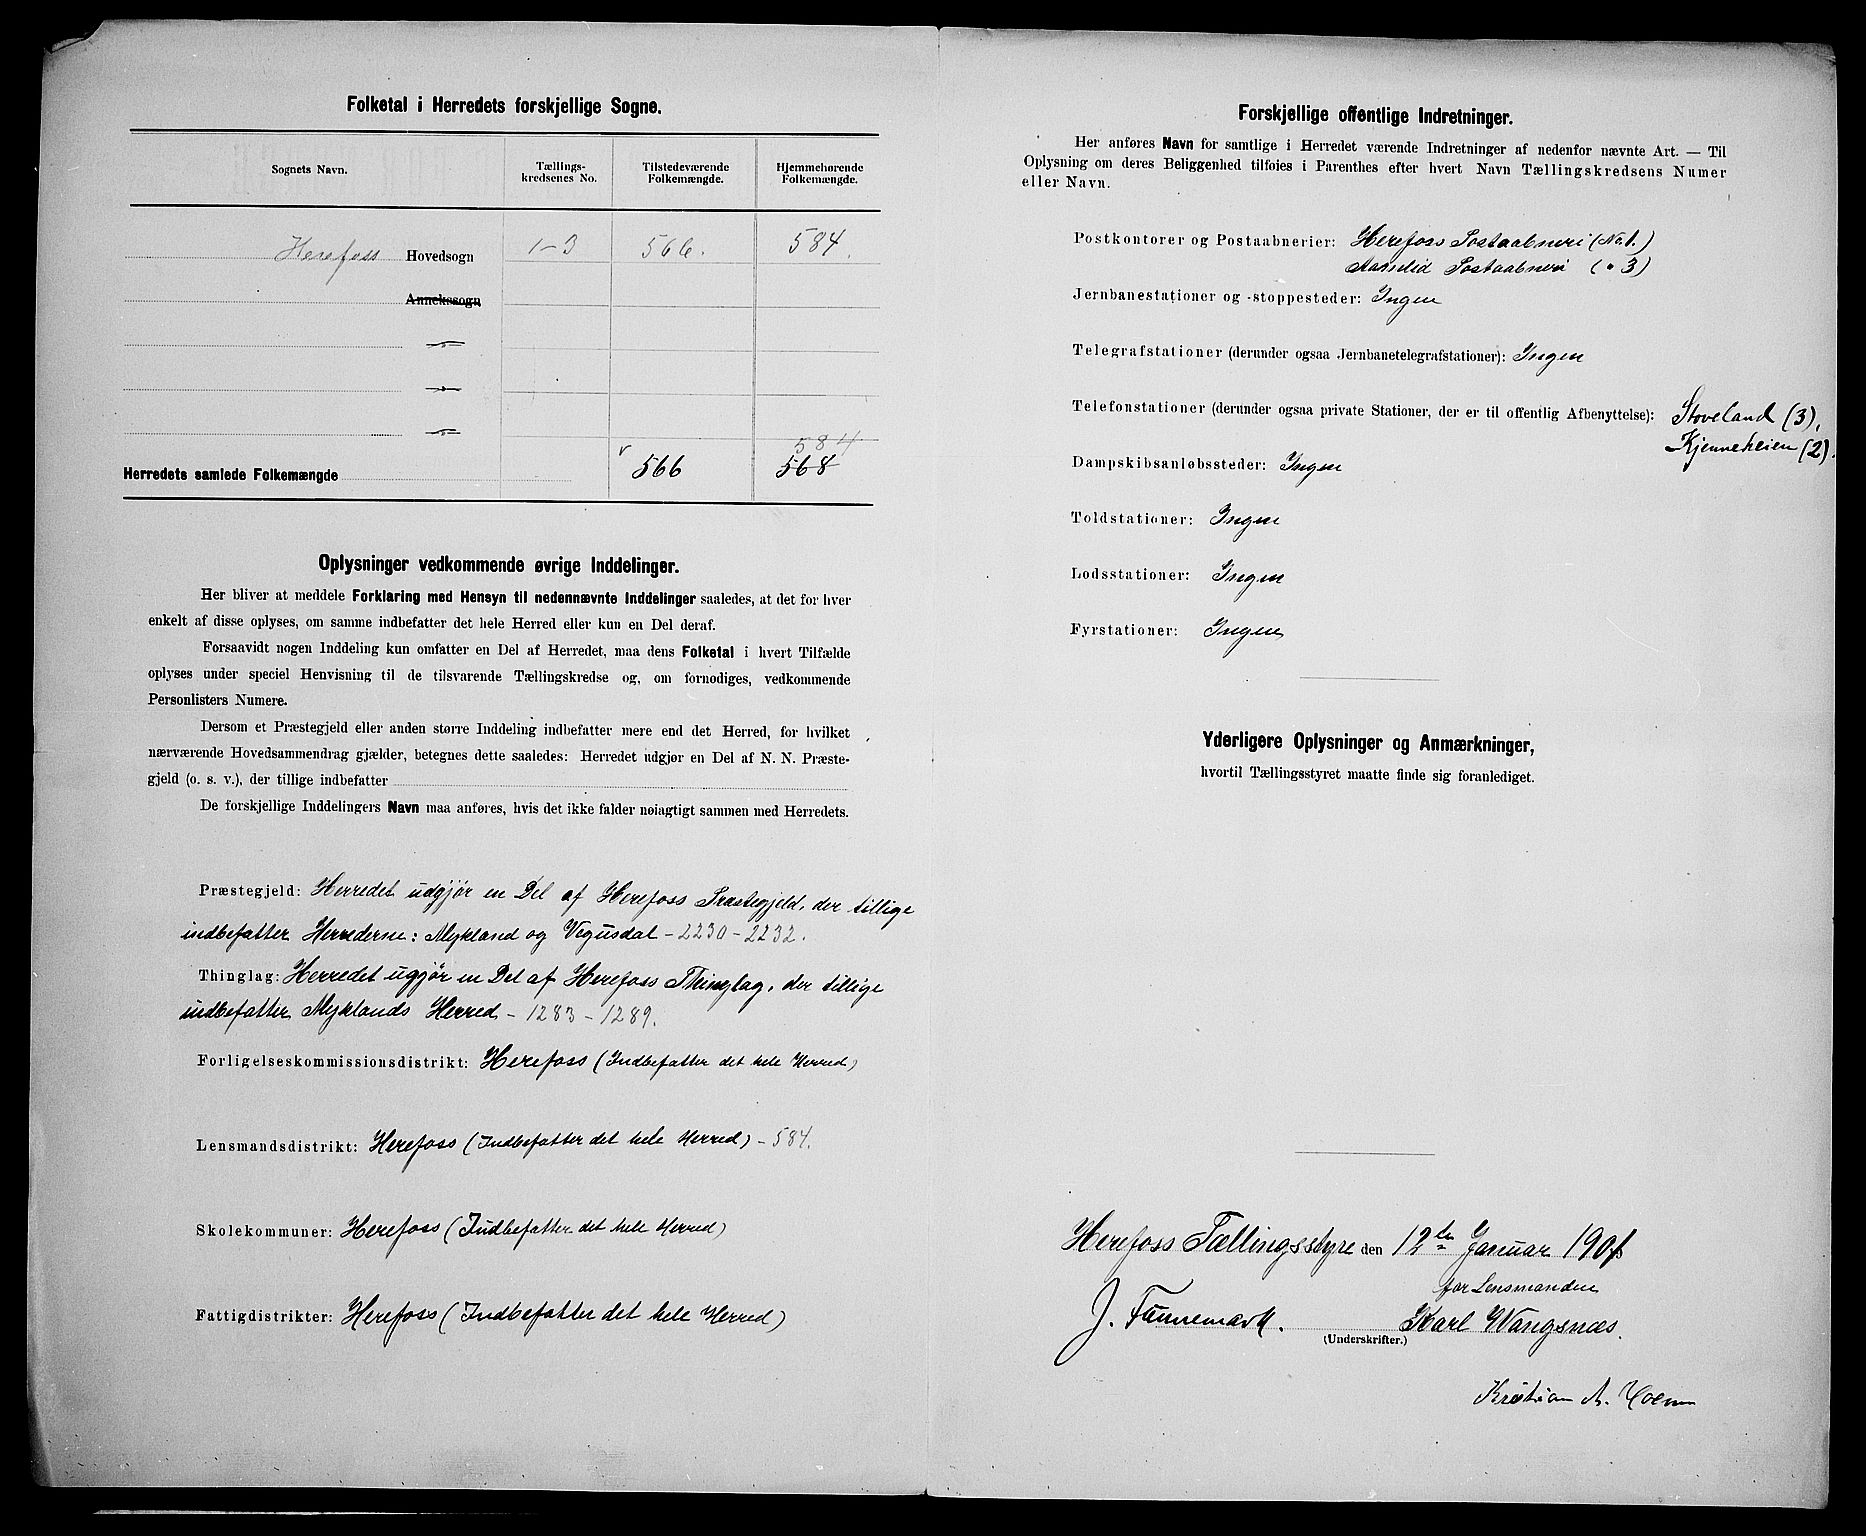 Folketal i Herredets forskjellige Sogne.
Sognets Navn. Tællings-kredsenes No. Tilstedeværende Folkemængde. Hjemmehørende Folkemængde.
Herefoss Hovedsogn 1-3 566. 584.
Annekssogn
„
„
„
584
Herredets samlede Folkemængde 566 568
Oplysninger vedkommende øvrige Inddelinger.
Her bliver at meddele Forklaring med Hensyn til nedennævnte Inddelinger saaledes, at det for hver
enkelt af disse oplyses, om samme indbefatter det hele Herred eller kun en Del deraf.
Forsaavidt nogen Inddeling kun omfatter en Del af Herredet, maa dens Folketal i hvert Tilfælde
oplyses under speciel Henvisning til de tilsvarende Tællingskredse og, om fornødiges, vedkommende
Personlisters Numere.
Dersom et Præstegjeld eller anden større Inddeling indbefatter mere end det Herred, for hvilket
nærværende Hovedsammendrag gjælder, betegnes dette saaledes: Herredet udgjør en Del af N. N. Præste-
gjeld (o. s. v.), der tillige indbefatter
De forskjellige Inddelingers Navn maa anføres, hvis det ikke falder nøiagtigt sammen med Herredets.
Præstegjeld: Herredet udgjør en Del af Herefoss Præstegjeld, der tillige
indbefatter Herrederne: Mykland og Vegusdal - 2230 - 2232.
Thinglag: Herredet ugjør en Del af Herefoss Thinglag, der tillige
indbefatter Myklands Herred - 1283 - 1289.
Forligelseskommissionsdistrikt: Herefoss (Indbefatter det hele Herred)
Lensmandsdistrikt: Herefoss (Indbefatter det hele Herred) - 584.
Skolekommuner: Herefoss (Indbefatter det hele Herred)
Fattigdistrikter: Herefoss (Indbefatter det hele Herred)
Forskjellige offentlige Indretninger.
Her anføres Navn for samtlige i Herredet værende Indretninger af nedenfor nævnte Art. — Til
Oplysning om deres Beliggenhed tilføies i Parenthes efter hvert Navn Tællingskredsens Numer
eller Navn.
Postkontorer og Postaabnerier: Herefoss Postaabneri (No. 1.)
Postaabneri (" 3)
Jernbanestationer og -stoppesteder: Ingen
Telegrafstationer (derunder ogsaa Jernbanetelegrafstationer): Ingen
Telefonstationer (derunder ogsaa private Stationer, der er til offentlig Afbenyttelse): Stoveland (3),
Kjenneheien (2).
Dampskibsanløbssteder: Ingen
Toldstationer: Ingen
Lodsstationer: Ingen
Fyrstationer: Ingen
Yderligere Oplysninger og Anmærkninger,
hvortil Tællingsstyret maatte finde sig foranlediget.
Herefoss Tællingsstyre den 12te Januar 1901
for Lensmanden
J. Fannemark. Karl Wangsnæs.
(Underskrifter.)
Kristian A.